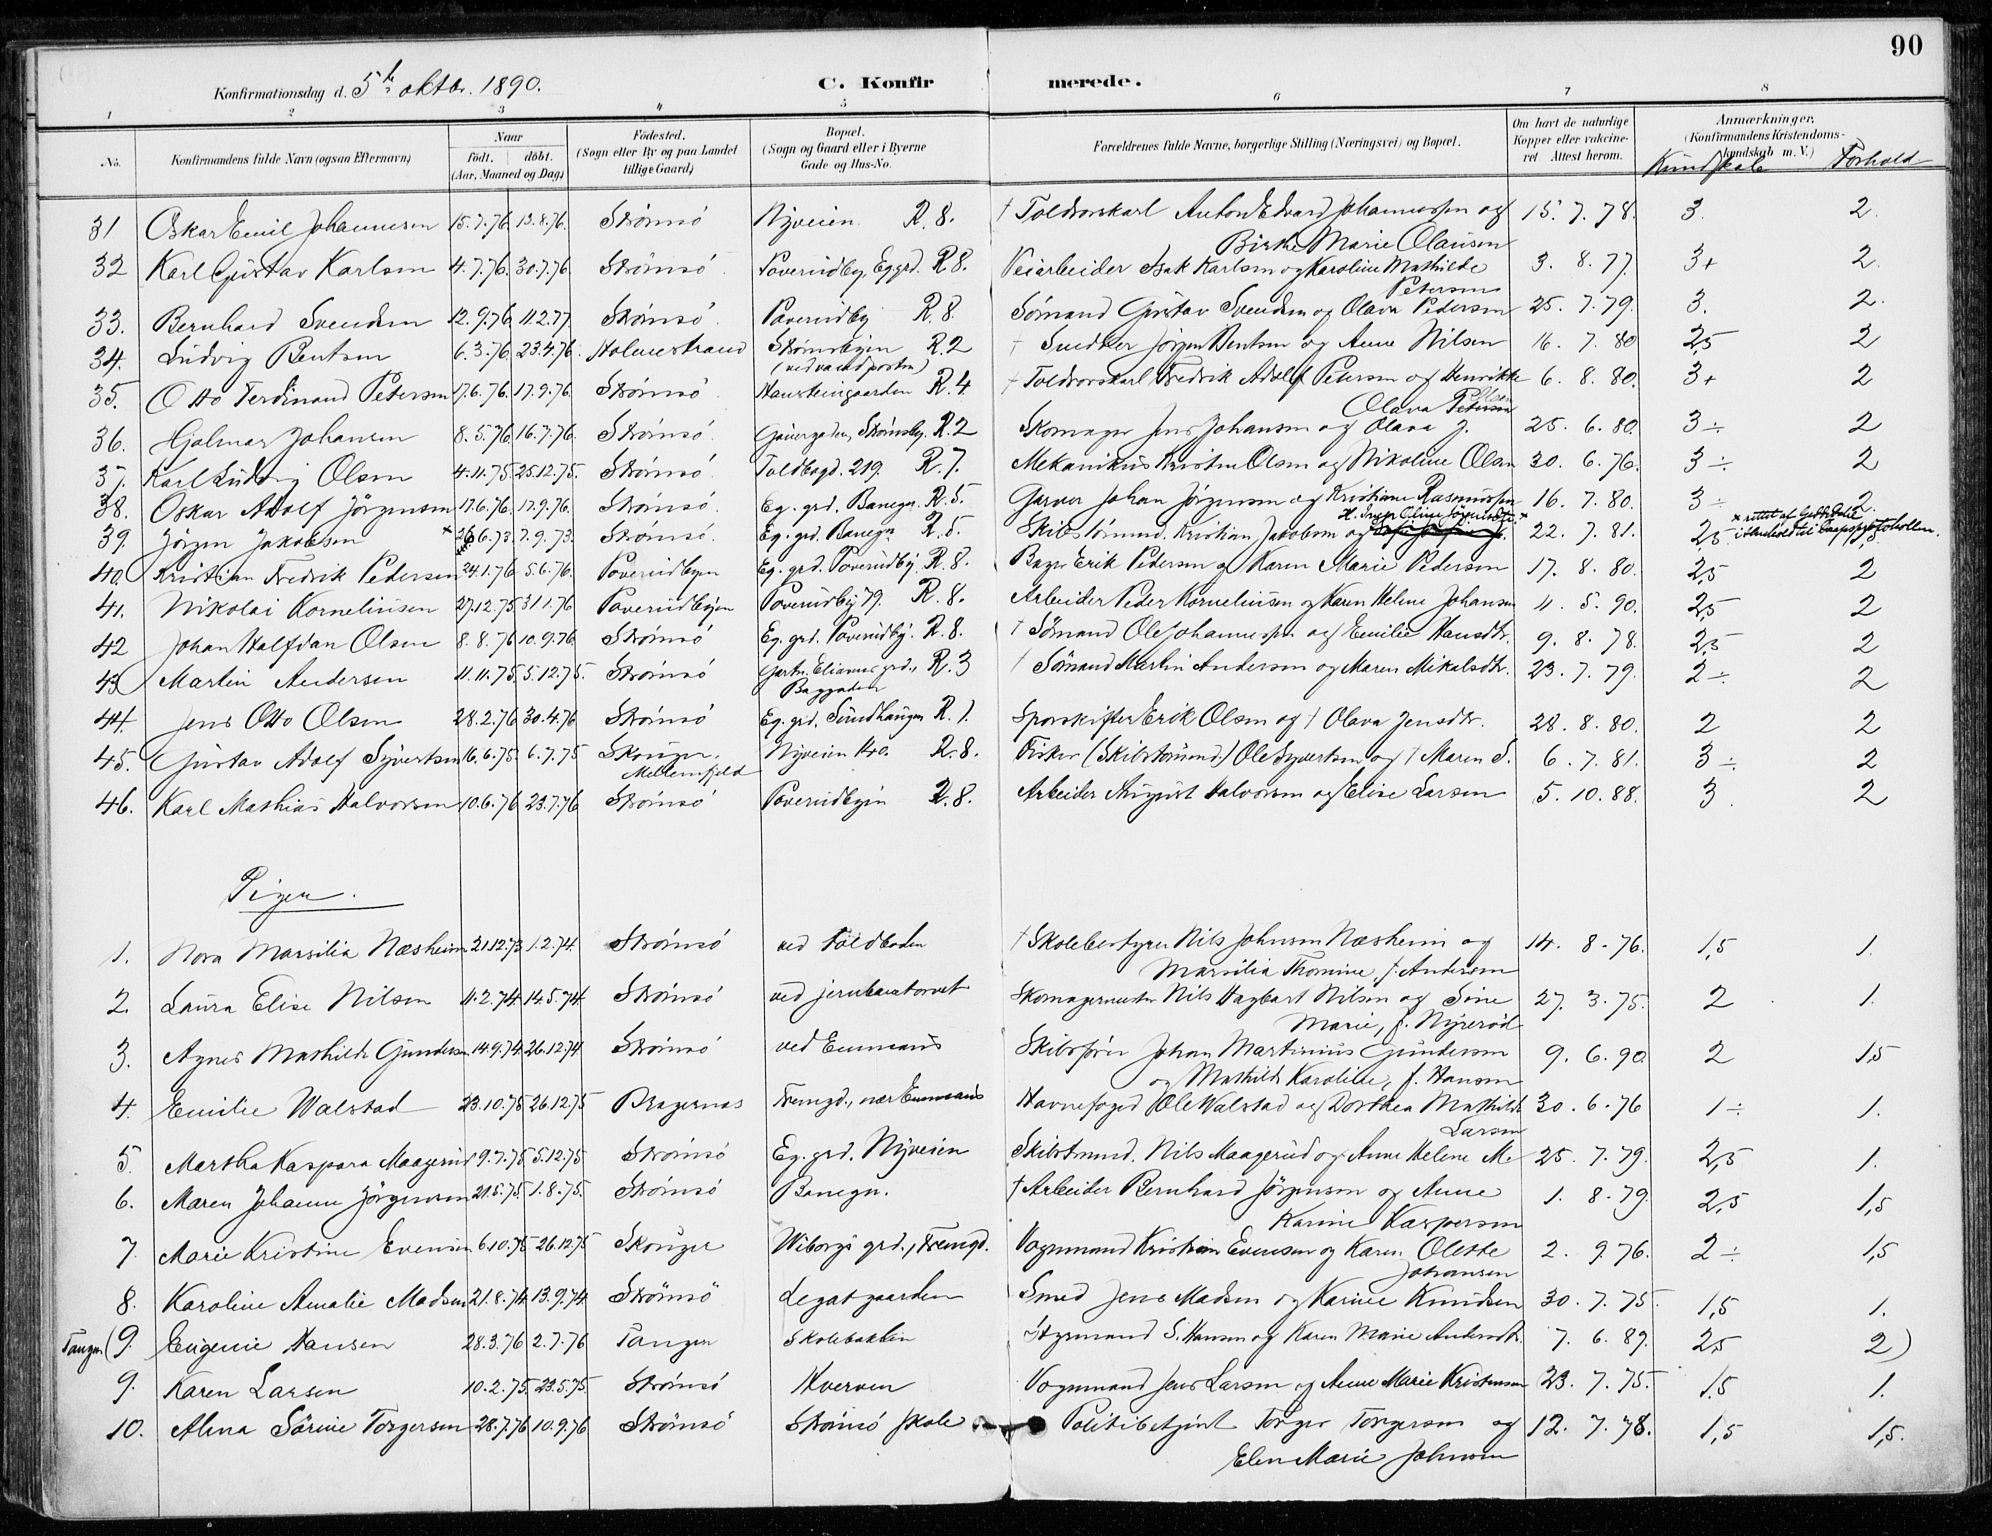 90
Konfirmationsdag d. 5te oktbr. 1890. C. Konfir merede.
1 2 3 4 5 6 7 8
No. Konfirmandens fulde Navn (ogsaa Efternavn) Naar født. døbt. (Aar, Maaned og Dag) Fødested. (Sogn eller By og paa Landet tillige Gaard) Bopæl. (Sogn og Gaard eller i Byerne Gade og Hus-No. Forældrenes fulde Navne, borgerlige Stilling (Næringsvei) og Bopæl. Om havt de naturlige Kopper eller vakcineret. Attest herom. Anmærkninger. (Konfirmandens Kristendomskundskab m. V.) Kundskab Forhold
31 Oskar Emil Johannesen 15.7.76. 13.8.76. Strömsö Nyveien R. 8. † Toldvorskarl Anton Edvard Johannessen og 15. 7. 78. 3. 2.
Birthe Marie Olausen
32 Karl Gustav Karlsen 4.7.76. 30.7.76. Strömsö Poverudby, Eg. grd. R 8. Veiarbeider Isak Karlsen og Karoline Mathilde 3. 8. 77. 3+ 2.
Petersen
33. Bernhard Svendsen 12.9.76. 11.2.77 Strömsö. Poverudby R. 8. Sömand Gustav Svendsen og Olava Pedersen 25. 7. 79. 3. 2.
34. Ludvig Bentsen 6.3.76. 23.4.76. Holmestrand Strömsbyen R. 2 † Snedker Jörgen Bentsen og Anne Nilsen 16. 7. 80 2,5 2
(ved vandposten)
35. Otto Ferdinand Petersen 17.6.76. 17.9.76. Strömsö Hausteingaarden R. 4 † Toldvorskarl Fredrik Adolf Petersen og Henrikke 6. 8. 80. 3+ 2
Olava Petersen Olsen
36. Hjalmar Johansen 8.5.76. 16.7.76. Strömsö. Gåsergaden, Strömsby. R. 2 Skomager Jens Johansen og Olava J. 25. 6. 80. 3 ÷ 2
37. Karl Ludvig Olsen 4.11.75. 25.12.75. Strömsö. Toldbogd. 219. R. 7. Mekanikus Kristen Olsen og Nikoline Olsen 30. 6. 76. 3 ÷ 2
38. Oskar Adolf Jörgensen 17.6.76. 17.9.76. Strömsö. Eg. grd. Banegn. R. 5. Garver Johan Jörgensen og Kristiane Rasmussen 16. 7. 80. 3 ÷ 2
39. Jörgen Jakobsen × 26.6.73. 7.9.73. Strömsö. Eg. grd. Banegn. R. 5. Skibstömmd. Kristian Jakobsen og H. Inger Oline Jörgensdtr. × 22. 7. 81. 2,5 × rettet af i Henhold til Daapsprotokollen.
40. Kristian Fredrik Pedersen 24.1.76 5.6.76. Poverudbyen Eg. grd. Poverudby. R. 8. Bager Erik Pedersen og Karen Marie Pedersen 17. 8. 80. 2,5 2
41. Nikolai Korneliussen 27.12.75 31.1.76 Poverudbyen Poverudby 79. R. 8. Arbeider Peder Korneliussen og Karen Helene Johansen 11. 5. 90. 2,5 2
42 Johan Halfdan Olsen 8.8.76 10.9.76 Strömsö Eg. grd. Poverudby. R. 8. † Sömand Ole Johannessen og Emilie Hansdtr. 9. 8. 78. 2,5 2
43 Martin Andersen 11.11.75 5.12.75. Strömsö Gartn. Eliasens grd., R. 3 † Sömand Martin Andersen og Maren Mikalsdtr. 23. 7. 79. 2 ÷ 2
Baggaden
44. Jens Otto Olsen 28.2.76 30.4.76 Strömsö Eg. grd. Sundhaugen R. 1. Sporskifter Erik Olsen og † Olava Jensdtr. 28. 8. 80. 2 2
45. Gustav Adolf Syvertsen 16.6.75. 6.7.75 Skouger, Nyveien 140. R. 8. Fisker (Skibstömmd.) Ole Syvertsen og † Maren S. 6. 7. 81. 3 ÷ 2
Mellemfjeld
46. Karl Mathias Halvorsen 10.6.76 23.7.76 Strömsö Poverudbyen R. 8. Arbeider August Halvorsen og Elise Larsen 5. 10. 88. 3 2
Piger.
1. Nora Marsilia Næsheim 21.12.73 1.2.74. Strömsö ved Toldboden † Skolebestyrer Nils Johnsen Næsheim og 14. 8. 76. 1,5 1.
Marsilia Thomine, f. Andersen
2. Laura Elise Nilsen 11.2.74 14.5.74 Strömsö ved jernbanetorvet Skomagermester Nils Hagbart Nilsen og Sine 27. 3. 75. 2 1.
Marie, f. Nyreröd
3. Agnes Mathilde Gundersen 14.9.74 26.12.74 Strömsö ved Emmaus Skibsförer Johan Martinius Gundersen 9. 6. 90. 2 1,5
og Mathilde Karoline, f. Hansen
4. Emilie Walstad 23.10.75 26.12.75 Bragernas Tremgd., nær Emmaus Havnefoged Ole Walstad og Dorthea Mathilde 30. 6. 76 1 ÷ 1.
Larsen
5. Martha Kaspara Maagerud 9.7.75 5.12.75 Strömsö Eg. grd. Nyveien Skibstmmd. Nils Maagerud og Anne Helene M. 25. 7. 79. 2,5 1.
6. Maren Johanne Jörgensen 21.5.75 1.8.75. Strömsö Banegn. † Arbeider Bernhard Jörgensen og Anne 1. 8. 79. 2,5 1,5
Karine Kaspersen
7. Marie Kristine Evensen 6.10.75 26.12.75 Skouger Wiborgs grd., Tremgd. Vognmand Kristian Evensen og Karen Olette 2. 9 76. 2 ÷ 1,5
Johansen
8. Karoline Amalie Madsen 21.8.74 13.9.74. Strömsö Legatgaarden Smed Jens Madsen og Karine Knudsen 30. 7. 75. 1,5 1.
Tangen (9. Eugenie Hansen 28.3.76 2.7.76 Tangen Skolebakken Styrmand S. Hansen og Karen Marie Andersdtr. 7. 6. 89. 2,5 2)
9. Karen Larsen 10.2.75 23.5.75 Strömsö Kverven Vognmand Jens Larsen og Anne Marie Kristensen 23. 7. 75. 1,5 1.
10. Alma Sörine Torgersen 28.7.76 10.9.76 Strömsö Strömsö Skole Politibetjent Torger Torgersen og 12. 7. 78. 1,5 1,5.
Elen Marie Johnsen